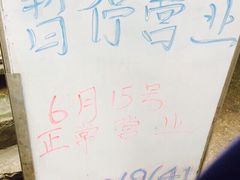 暂停营业
6月15号
正常营业